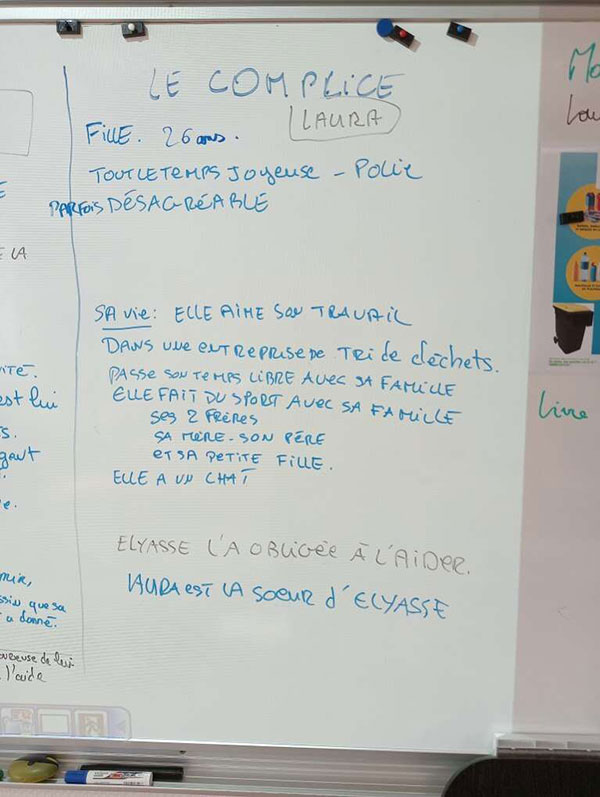 LE COMPLICE
LAURA
FILLE. 26 ans.
TOUT LE TEMPS JOYEUSE - POLIE
PARFOIS DÉSAGRÉABLE
SA vie: ELLE AIME SON TRAVAIL
DANS UNE ENTREPRISE DE TRI de déchets.
PASSE SON TEMPS LIBRE AVEC SA FAMILLE
ELLE FAIT DU SPORT AVEC SA FAMILLE
SES 2 FRÈRES
SA MÈRE - SON PÈRE
ET SA PETITE FILLE.
ELLE A UN CHAT
ELYASSE L'A OBLIGÉE À L'AIDER.
LAURA EST LA SOEUR d'ELYASSE
E LA
est lui
que sa
a donné.
de lui
l'aide
Livre